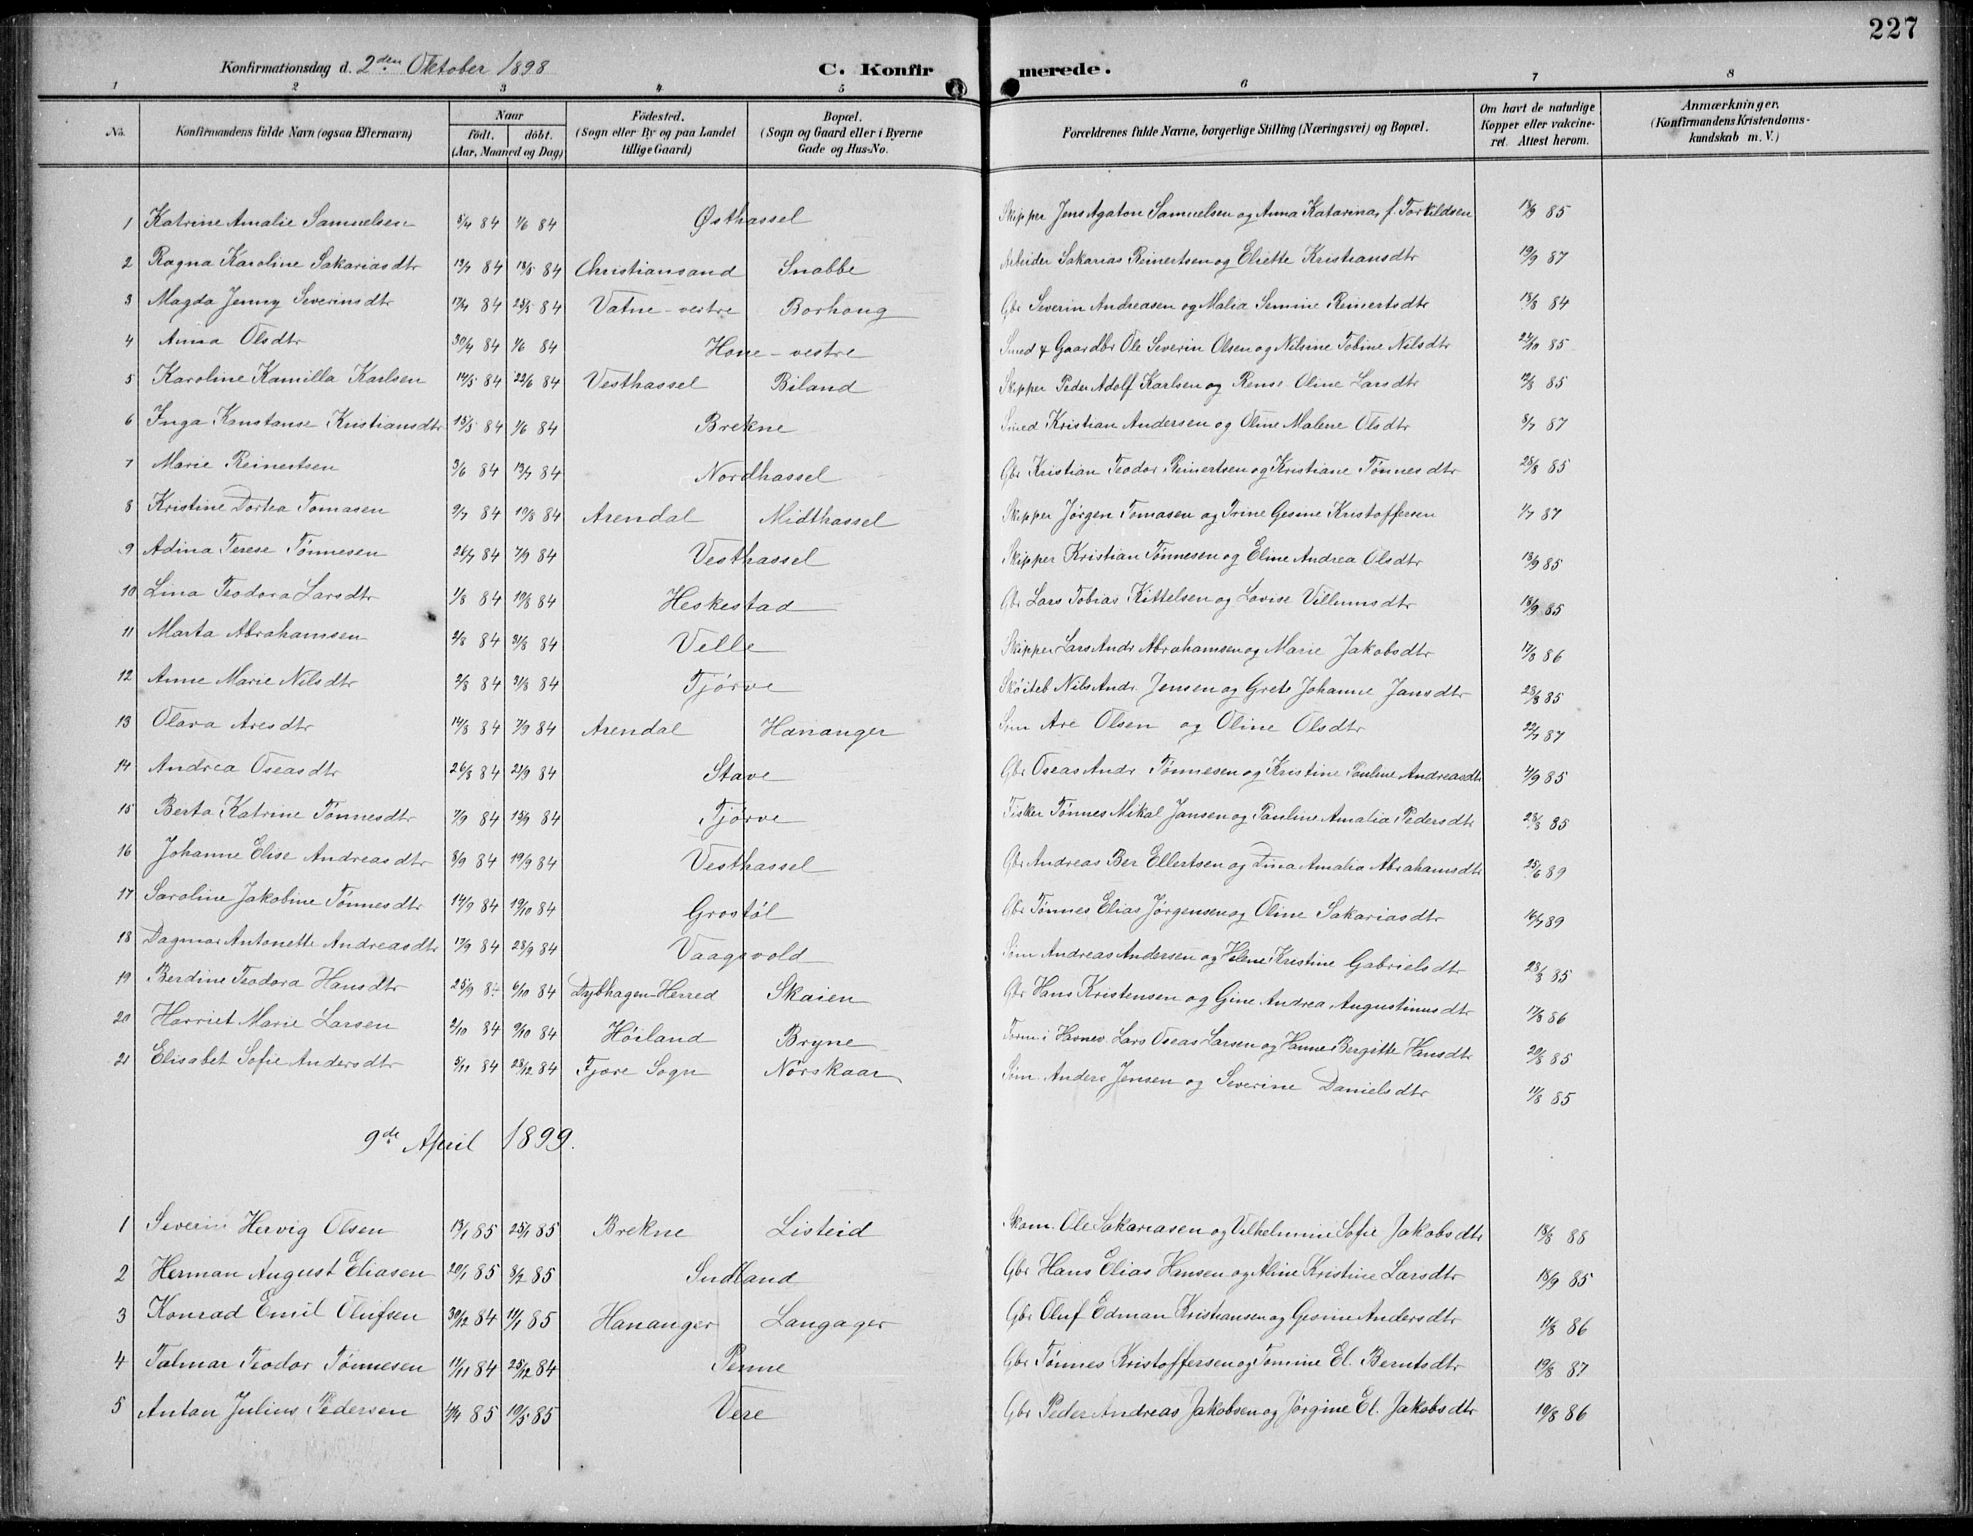 227
Konfirmationsdag d. 2den Oktober 1898 C. Konfirmerede.
1 2 3 4 5 6 7 8
No. Konfirmandens fulde Navn (ogsaa Efternavn) Naar födt. döbt. (Aar, Maaned og Dag) Födested. (Sogn eller By og paa Landet tillige Gaard) Bopæl. (Sogn og Gaard eller i Byerne Gade og Hus-No. Forældrenes fulde Navne, borgerlige Stilling (Næringsvei) og Bopæl. Om havt de naturlige Kopper eller vakcineret. Attest herom. Anmærkninger. (Konfirmandens Kristendomskundskab m. V.)
1 Katrine Amalie Samuelsen 5/4 84 1/6 84 Østhassel Skipper Jens Agaton Samuelsen og Anna Katarina, f. Torkildsen 13/9 85
2 Ragna Karoline Sakariasdtr 13/4 84 18/5 84 Christiansand Snabbe Arbeider Sakarias Reinertsen og Eliette Kristiansdtr 19/9 87
3 Magda Jenny Severinsdtr 17/4 84 25/5 84 Vatne-vestre Borhoug Gbr Severin Andreasen og Malia Semine Reinertsdtr 18/8 84
4 Anna Olsdtr 30/4 84 1/6 84 Hone-vestre Smed & Gaardbr Ole Severin Olsen og Nilsine Tobine Nilsdtr 22/10 85
5 Karoline Kamilla Karlsen 14/5 84 22/6 84 Vesthassel Biland Skipper Peder Adolf Karlsen og Rense Oline Larsdtr 12/8 85
6 Inga Konstanse Kristiansdtr 15/5 84 1/6 84 Brekne Smed Kristian Andersen og Oline Malene Olsdtr 8/7 87
7 Marie Reinertsen 3/6 84 13/7 84 Nordhassel Gbr Kristian Teodor Reinertsen og Kristiane Tønnesdtr 28/8 85
8 Kristine Dortea Tomasen 9/7 84 10/8 84 Arendal Midthassel Skipper Jørgen Tomasen og Trine Gesine Kristoffersen 1/7 87
9 Adina Terese Tønnesen 26/7 84 7/9 84 Vesthassel Skipper Kristian Tønnesen og Eline Andrea Olsdtr 13/9 85
10 Lina Teodora Larsdtr 1/8 84 10/8 84 Heskestad Gbr Lars Tobias Kittelsen og Lovise Villumsdtr 18/9 85
11 Marta Abrahamsen 2/8 84 31/8 84 Velle Skipper Lars Andr Abrahamsen og Marie Jakobsdtr 17/8 86
12 Anne Marie Nilsdtr 2/8 84 31/8 84 Tjørve Sköiteb Nils Andr. Jensen og Grete Johanne Jansdtr 28/8 85
13 Olava Aresdtr 14/8 84 7/9 84 Arendal Hananger Søm Are Olsen og Oline Olsdtr 22/7 87
14 Andrea Oseasdtr 26/8 84 21/9 84 Stave Gbr Oseas Andr Tønnesen og Kristine Pauline Andreasdtr 4/9 85
15 Berta Katrine Tønnesdtr 7/9 84 13/9 84 Tjørve Fisker Tønnes Mikal Jansen og Pauline Amalia Pedersdtr 28/8 85
16 Johanne Elise Andreasdtr 8/9 84 19/9 84 Vesthassel Gbr Andreas Ber Ellertsen og Dina Amalia Abrahamsdtr 25/6 89
17 Saroline Jakobine Tønnesdtr 14/9 84 19/10 84 Grostøl Gbr Tønnes Elias Jørgensen og Oline Sakariasdtr 16/7 89
18 Dagmar Antonette Andreasdtr 17/9 84 28/9 84 Vaagsvold Søm Andreas Andersen og Helene Kristine Gabrielsdtr 28/8 85
19 Berdine Teodora Hansdtr 25/9 84 6/10 84 Dybhagen-Herred Skaien Gbr Hans Kristensen og Gine Andrea Augustinusdtr 17/8 86
20 Harriet Marie Larsen 2/10 84 9/10 84 Höiland Bryne Form i Havnev. Lars Oseas Larsen og Hanne Bergitte Hansdtr 20/8 85
21 Elisabet Sofie Andersdtr 5/11 84 28/12 84 Fjære Sogn Nörskaar Søm. Anders Jensen og Severine Danielsdtr 11/8 85
9de April 1899.
1 Severin Hervig Olsen 13/1 85 25/1 85 Brekne Listeid Skom. Ole Sakariasen og Vilhelmine Sofie Jakobsdtr 18/8 88
2 Herman August Eliasen 20/1 85 8/2 85 Sudland Gbr Hans Elias Hansen og Aline Kristine Larsdtr 18/9 85
3 Konrad Emil Olufsen 30/12 84 11/1 85 Hananger Langager Gbr Oluf Edman Kristiansen og Gesine Andersdtr 17/8 86
4 Talmar Teodor Tønnesen 19/11 84 25/12 84 Penne Gbr Tønnes Kristoffersen og Tomine El. Berntsdtr 19/8 87
5 Antan Julius Pedersen 4/4 85 10/5 85 Vere Gbr Peder Andreas Jakobsen og Jørgine El. Jakobsdtr 19/8 86